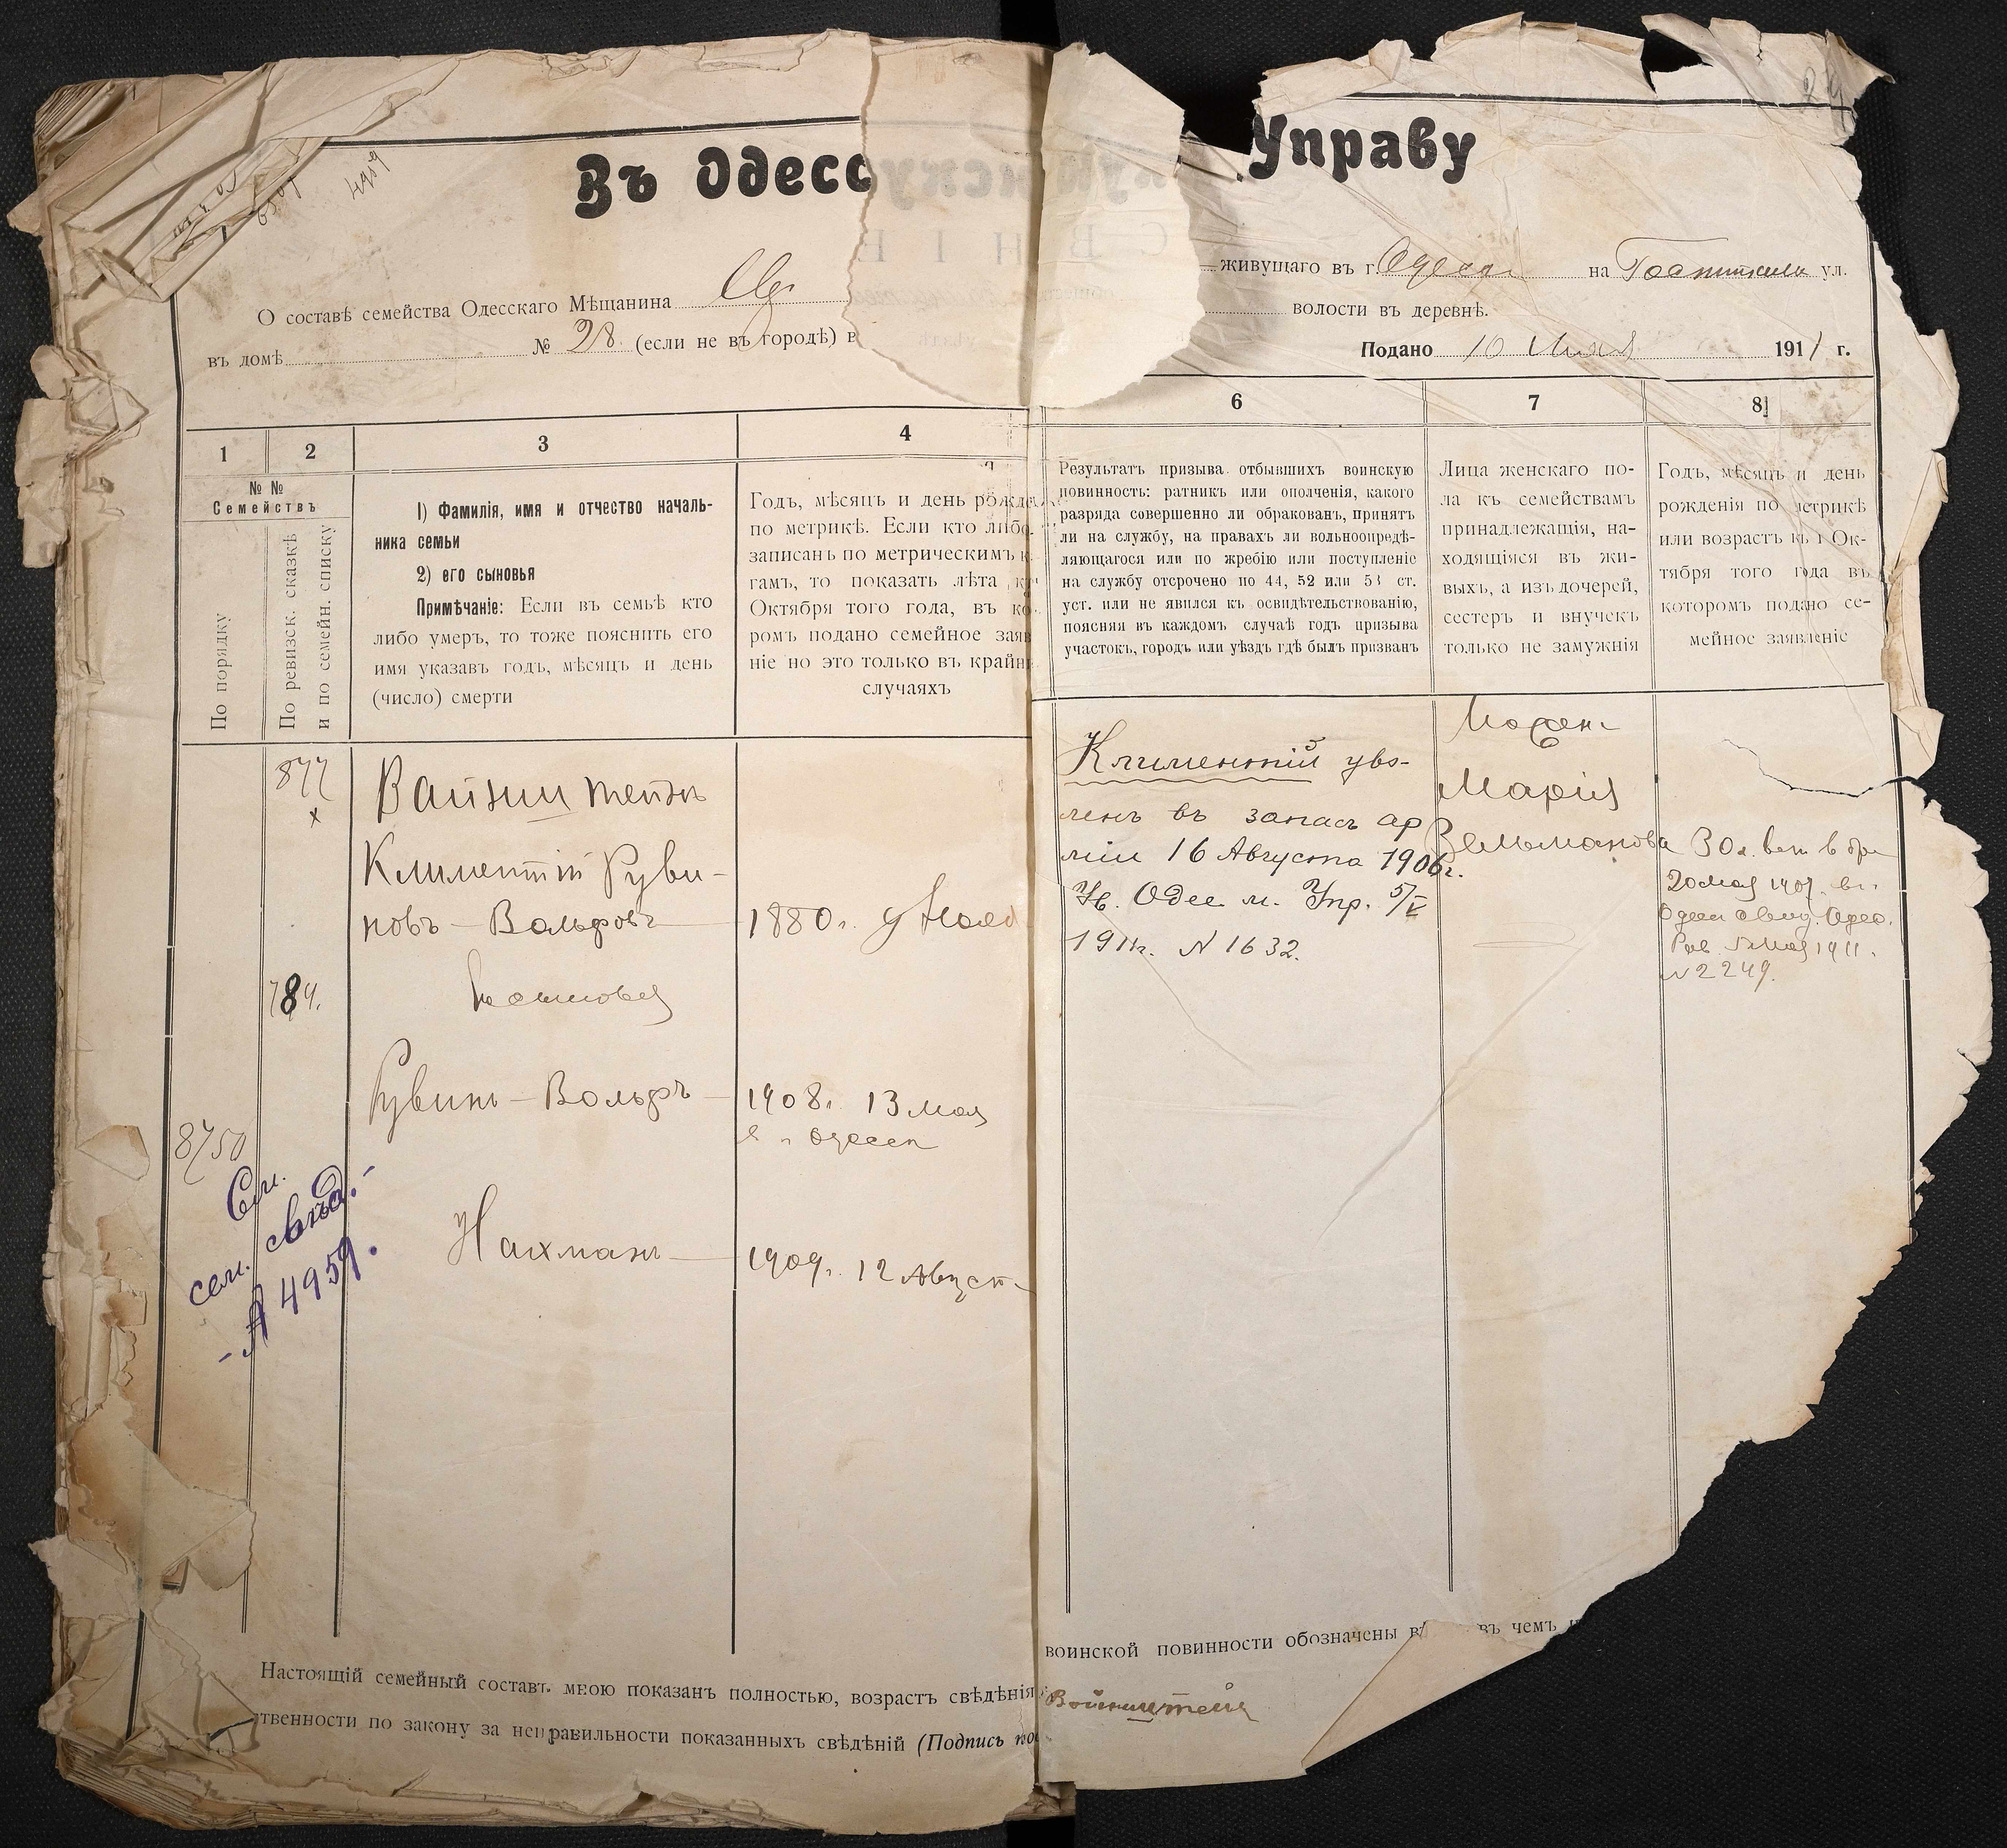 29
4959
Въ Одесс
Управу
О составѣ семейства Одесскаго Мѣщанина
живущаго въ г. Одессѣ на ул.
въ домѣ № 28 (если не въ городѣ) в
волости въ деревнѣ.
Подано 10 1911 г.
1 2 3 4
№ №
Семействъ
По порядку
По ревизск. сказкѣ
и по семейн. списку
1) Фамилія, имя и отчество началь-
ника семьи
2) его сыновья
Примѣчаніе: Если въ семьѣ кто
либо умеръ, то тоже пояснить его
имя указавъ годъ, мѣсяцъ и день
(число) смерти
Годъ, мѣсяцъ и день рожде
по метрикѣ. Если кто либо
записанъ по метрическимъ к
гамъ, то показать лѣта къ
Октября того года, въ ко
ромъ подано семейное заяв
ніе но это только въ крайн
случаяхъ
6 7 8
Результатъ призыва отбывшихъ воинскую
повинность: ратникъ или ополченія, какого
разряда совершенно ли обракованъ, принятъ
ли на службу, на правахъ ли вольноопредѣ-
ляющагося или по жребію или поступленіе
на службу отсрочено по 44, 52 или 53 ст.
уст. или не явился къ освидѣтельствованію,
поясняя въ каждомъ случаѣ годъ призыва
участокъ, городъ или уѣздъ гдѣ былъ призванъ
Лица женскаго по-
ла къ семействамъ
принадлежащія, на-
ходящіяся въ жи-
выхъ, а изъ дочерей,
сестеръ и внучекъ
только не замужнія
Годъ, мѣсяцъ и день
рожденія по метрикѣ
или возрастъ къ 1 Ок-
тября того года въ
которомъ подано се-
мейное заявленіе
877
х
Вайнштейнъ
Климентій Руви-
новъ-Вольфовъ 1880 г.
784.
Сыновья
Рувинъ-Вольфъ 1908 г. 13 мая
в г. Одессѣ
8750
Нахманъ 1909 г. 12 Август
См.
сем. свѣд.
№ 4959.
Климентій уво-
ленъ въ запасъ ар
міи 16 Августа 1906 г.
Ув. Одес. м. Упр. 5/V
1911 г. № 1632.
Марія
Зельманова
30 л.
20 мая 1907
мая 1911.
№ 2249.
Настоящій семейный составъ мною показанъ полностью, возрастъ свѣдѣнія
воинской повинности обозначены въ чемъ
твенности по закону за неправильности показанныхъ свѣдѣній (Подпись
Войнштейн